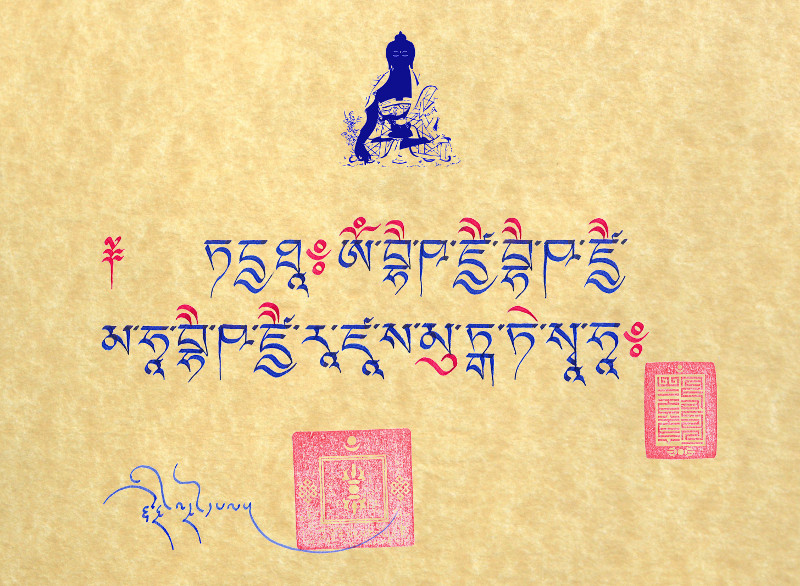 ཏདྱཐཱ༔ ཨོཾ་བྷཻ་ཥ་ཛྱཻ་བྷཻ་ཥ་ཛྱཻ་
མ་ཧཱ་བྷཻ་ཥ་ཛྱཻ་རཱ་ཛཱ་ས་མུ་དྒ་ཏེ་སྭཱ་ཧཱ༔